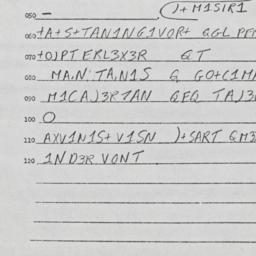 )+M1SIR1
050 —
060 +A+S+TAN1NG1VOR+ QGL PEM
070 +O)PT ERL3X3R QT
080 MA,N: TA,N1S Q GO+C1MA
090 M1CA)3R7AN QFQ TAJ3
100 O
110 AXV1N1S+V1SN )+SART QM3
120 1ND3R VONT